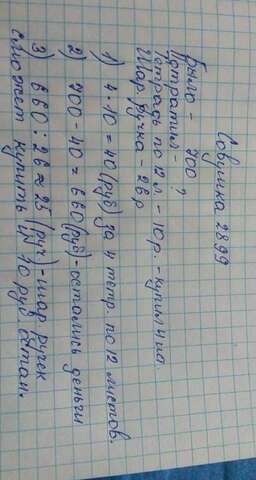 Совушка 2899
Было - 700
Потратил - ?
Тетрадь по 12 л - 10р. - купил 4 шт.
Шар. ручка - 26 р
1) 4 · 10 = 40 (руб) за 4 тетр. по 12 листов.
2) 700 - 40 = 660 (руб) - остались деньги
3) 660 : 26 ≈ 25 (руч) - шар ручек
сможет купить и 10 руб остан.